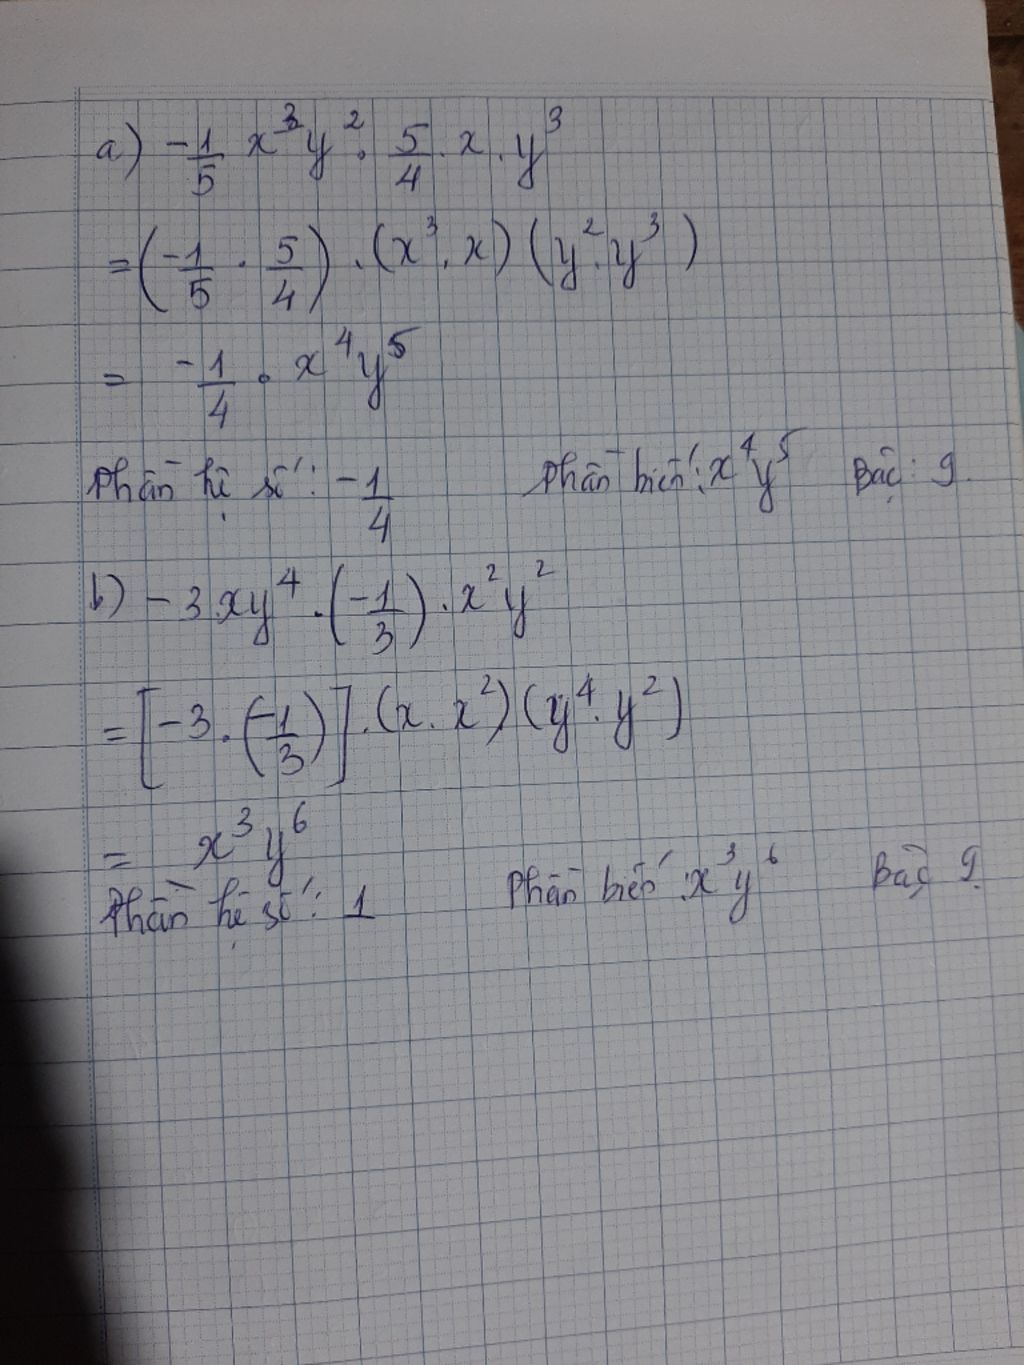 a) -1/5 x³y² . 5/4 . x . y³
= (-1/5 . 5/4) . (x³ . x) (y² . y³)
= -1/4 . x⁴y⁵
Phần hệ số : -1/4 Phần biến : x⁴y⁵ Bậc : 9.
b) -3xy⁴ . (-1/3) . x²y²
= [-3 . (-1/3)] . (x . x²) (y⁴ . y²)
= x³y⁶
Phần hệ số : 1 Phần biến : x³y⁶ Bậc 9.